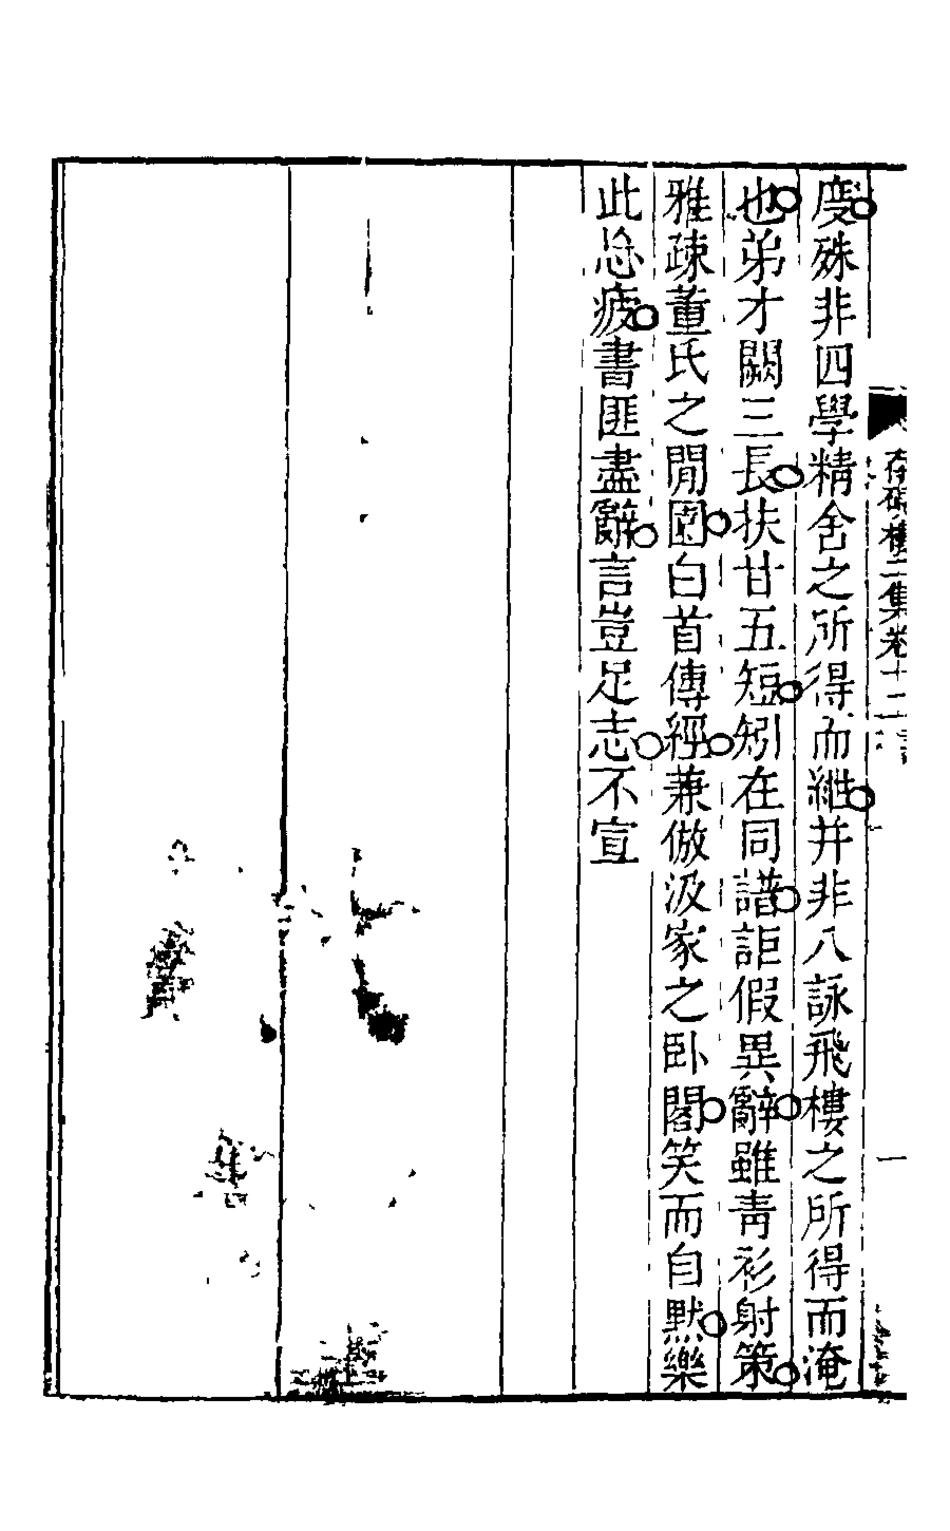 度殊非四學精舍之所得而紲并非八詠飛樓之所得而淹
也弟才闕三長扶甘五短矧在同譜詎假異辭雖靑衫射策
雅疎董氏之閒園白首傳經兼倣汲家之卧閣笑而自默樂
此忘疲書匪盡辭言豈足志不宣
存硯樓二集卷十二
一